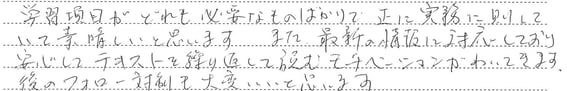 学習項目がどれも必要なものばかりで正に実務に則して
いて素晴しいと思います また、最新の情報に対応しており
安心してテキストを繰り返して読むモチベーションがわいてきます。
後のフォロー体制も大変いいと思います